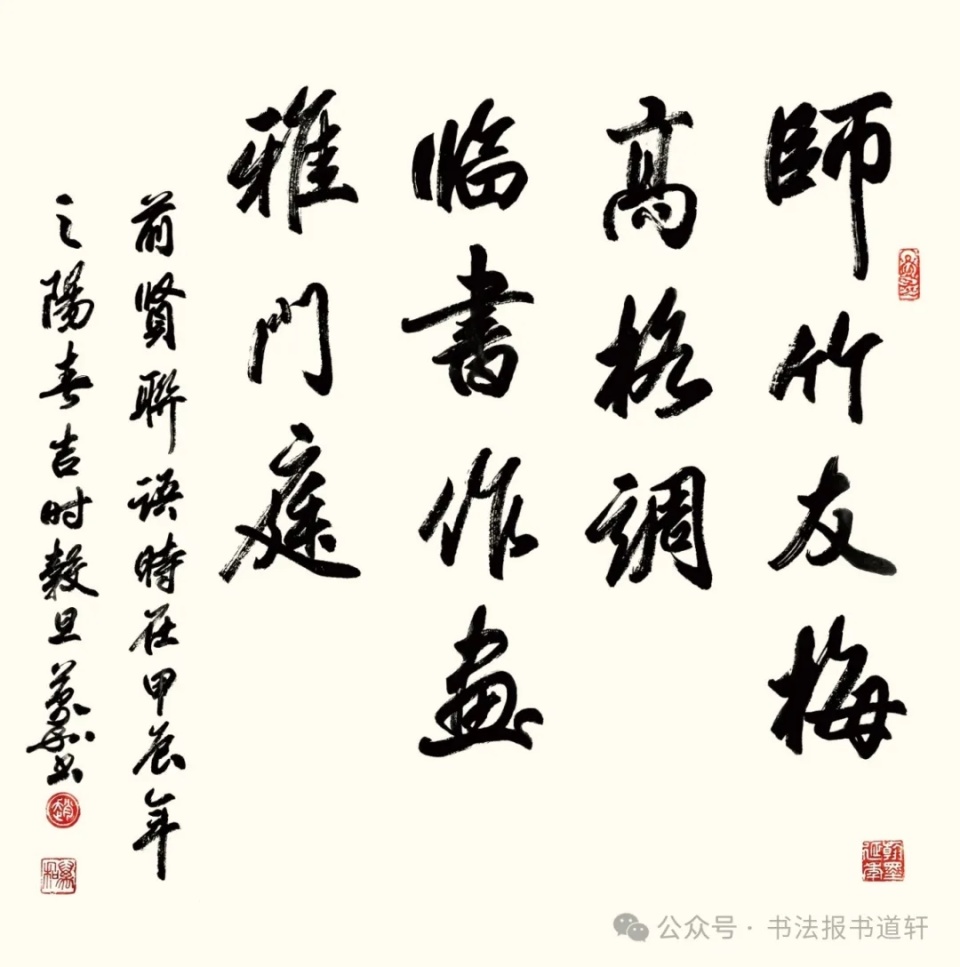 師竹友梅
高格調
临書作畫
雅門庭
前賢聯語時在甲辰年
之陽春吉时穀旦
翰墨延年
公众号·书法报书道轩